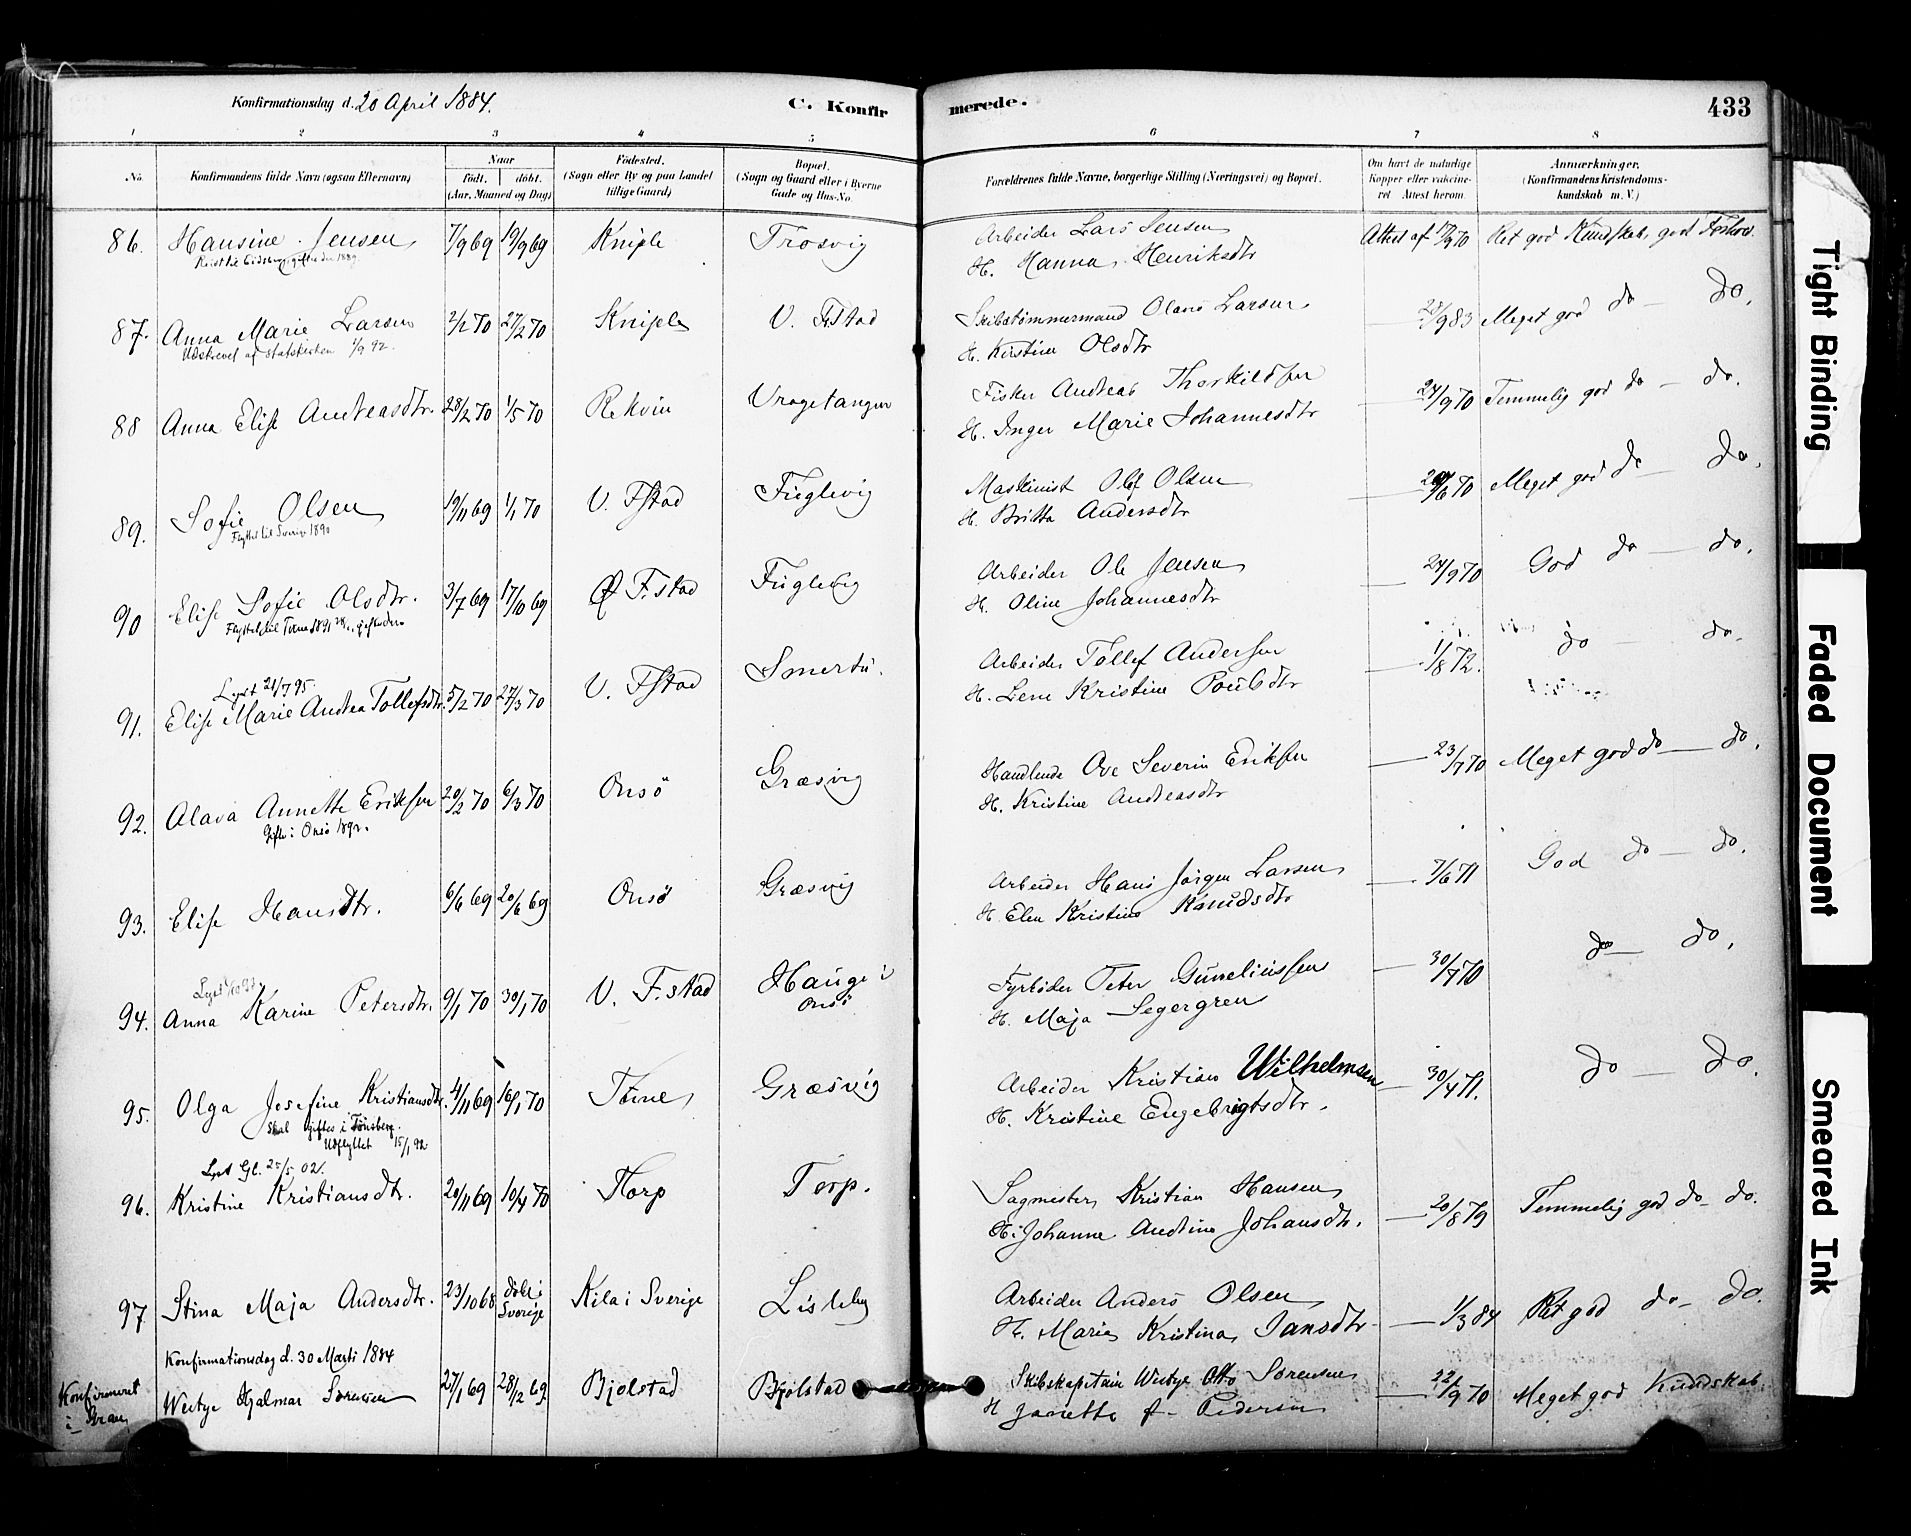 Konfirmationsdag d. 20 April 1884.
C. Konfirmerede.
433
1 2 3 4 5 6 7 8
No.
Konfirmandens fulde Navn (ogsaa Efternavn)
Naar
født. døbt.
(Aar, Maaned og Dag)
Fødested.
(Sogn eller By og paa Landet
tillige Gaard)
Bopæl.
(Sogn og Gaard eller i Byerne
Gade og Hus-No.
Forældrenes fulde Navne, borgerlige Stilling (Næringsvei) og Bopæl.
Om havt de naturlige
Kopper eller vaccine-
ret Attest herom.
Anmærkninger.
(Konfirmandens Kristendoms-
kundskab m. V.)
86. Hansine Jensen 7/9 69 19/9 69 Kniple Trosvig Arbeider Lars Jensen Attest af 17/9 70 Ret god Kundskab, god Forhold.
H. Hanna Henriksdtr
87. Anna Marie Larsen 2/2 70 27/2 70 Kniple V. Fstad Skibstømmermand Olaus Larsen — 28/9 83 Meget god do — do.
Udskrevet af Statskirken 1/9 92.
H. Kirstine Olsdtr
88 Anna Elise Andreasdtr. 28/2 70 1/5 70 Rekvin Vragetangen Fisker Andreas Thorkildsen — 24/9 70 Temmelig god do — do.
H. Inger Marie Johannesdtr
89. Sofie Olsen 19/11 69 1/1 70 V. Fstad Fuglevig Maskinist Olof Olsen — 6 70 Meget god do — do.
Flyttet til Sverige 1890
H. Britta Andersdtr
90 Elise Sofie Olsdtr. 3/7 69 17/10 69 Ø F.stad Fuglevig Arbeider Ole Jensen — 24/9 70 God do — do.
H. Oline Johannesdtr
Lyst 21/7 95.
91. Elise Marie Andrea Tollefsdtr. 5/2 70 27/3 70 V. Fstad Smertu. Arbeider Tollef Andersen — 1/8 72. do — do.
H. Lene Kristine Poulsdtr
92. Alava Annette Eriksen 20/2 70 6/3 70 Onsö Græsvig Handlende Ove Severin Eriksen — 23/7 70 Meget god do — do.
Gift i Onsö 1892.
H. Kristine Andreasdtr
93. Elise Hansdtr. 6/6 69 20/6 69 Onsö Græsvig Arbeider Hans Jörgen Larsen — 7/6 71 God do — do.
H. Elen Kristine Knudsdtr
94. Anna Karine Petersdtr. 9/1 70 30/1 70 V. F.stad Hauge i Onsö Fyrböder Peter Guneliussen — 30/7 70 do — do.
H. Maja Segergren
95. Olga Josefine Kristiansdtr. 4/11 69 16/1 70 Tune Græsvig Arbeider Kristian Wilhelmsen — 30/4 71. do — do.
skal giftes i Tönsberg.
Udflyttet 15/1 92
H. Kristine Engebrigtsdtr.
Lyst Gl. 25/5 02.
96. Kristine Kristiansdtr. 20/11 69 10/4 70 Torp Torp. Sagmester Kristian Hansen — 20/8 79 Temmelig god do — do.
H. Johanne Andrine Johansdtr.
97 Stina Maja Andersdtr. 23/10 68 döbt i Sverige Kila i Sverige Lisleby Arbeider Anders Olsen — 1/3 84 Ret god do — do.
H. Maria Kristina Jansdtr
Konfirmationsdag d. 30 Marti 1884
Konfirmeret i Hjalmar Sörensen 27/1 69 28/2 69 Bjölstad Bjölstad Skibskapitain Otto Sörensen — 22/9 70 Meget god Kundskab
H Janette f. Pedersen
Tight Binding
Faded Document
Smeared Ink